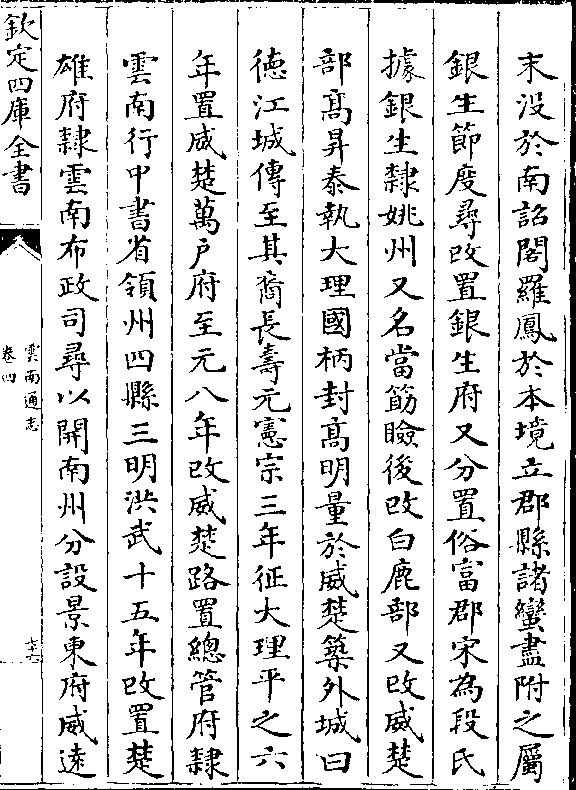 末没於南詔閣羅鳳於本境立郡縣諸蠻盡附之屬
銀生節度尋改置銀生府又分置俗富郡宋為段氏
據銀生隸姚州又名當筯瞼後改白鹿部又改威楚
部髙昇泰執大理國柄封髙明量於威楚築外城曰
徳江城傳至其裔長壽元憲宗三年征大理平之六
年置威楚萬戸府至元八年改威楚路置總管府隸
雲南行中書省領州四縣三明洪武十五年改置楚
雄府隸雲南布政司尋以開南州分設景東府威逺
欽定四庫全書
雲南通志
卷四